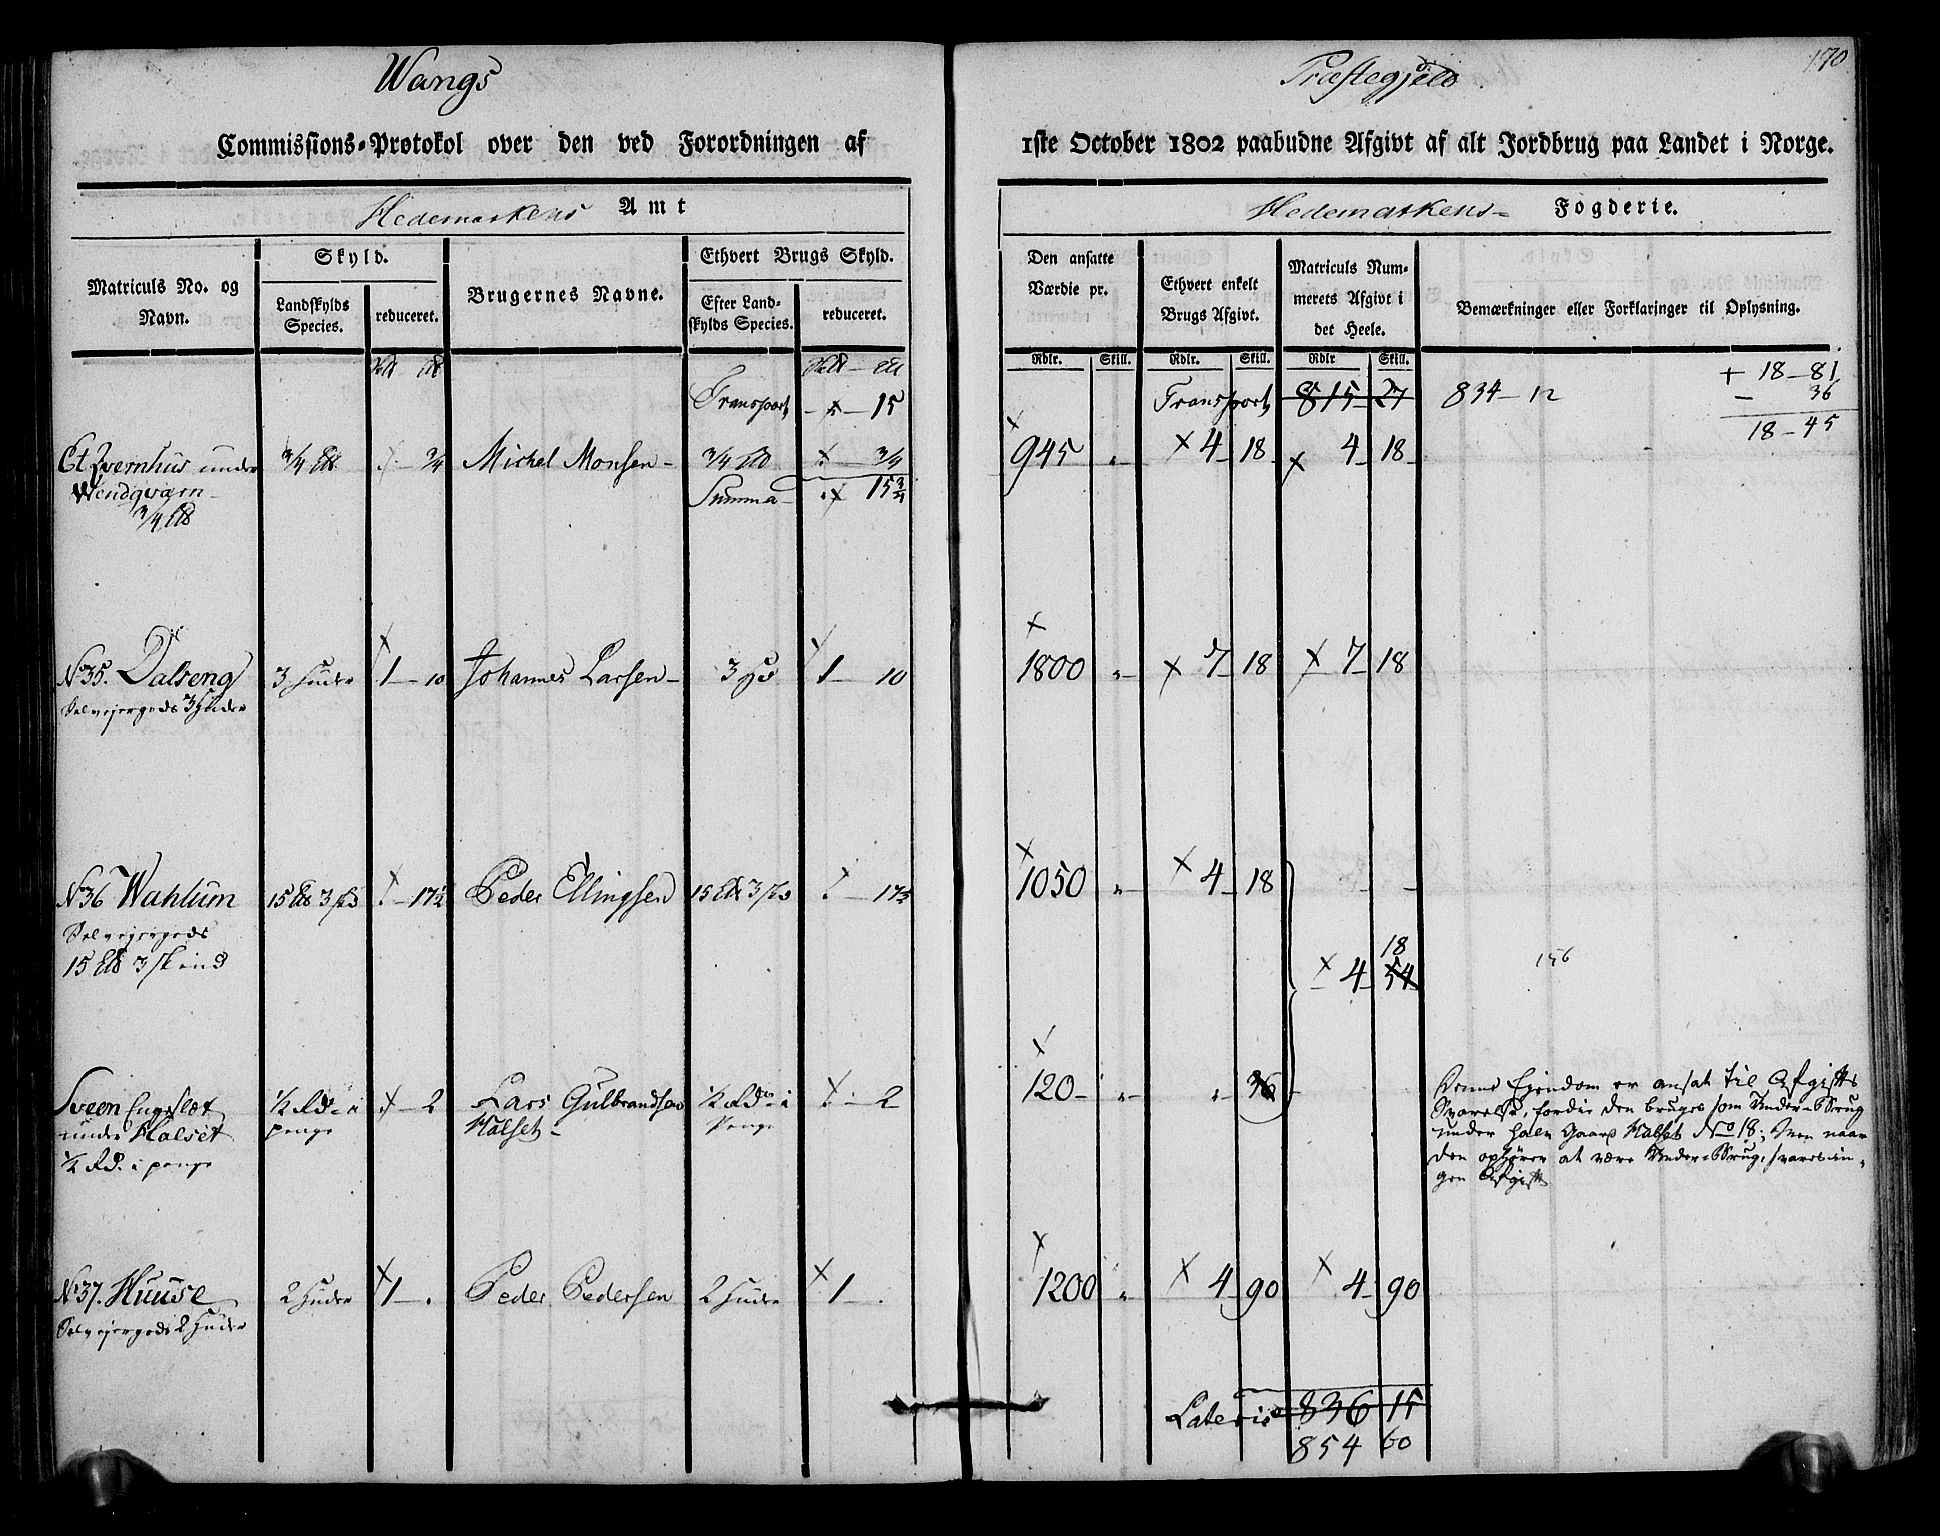 Wangs
Præstegjeld
170
Commissions-Protokol over den ved Forordningen af
1ste October 1802 paabudne Afgivt af alt Jordbrug paa Landet i Norge.
Hedemarkens Amt
Hedemarkens- Fogderie.
Matriculs No. og Navn.
Skyld.
Landskylds Species.
reduceret.
Brugernes Navne.
Ethvert Brugs Skyld.
Efter Landskylds Species.
reduceret.
Den ansatte Værdie pr.
Ethvert enkelt Brugs Afgivt.
Matriculs Nummerets Afgivt i det Heele.
Bemærkninger eller Forklaringer til Oplysning.
Rdlr. Skill. Rdlr. Skill. Rdlr Skill.
Transport 15
Transport 815 27 834-12
+ 18-81
- 36
18-45
Et Qvernhus under 3/4 3/4 Michel Monsen- 3/4 3/4 945 4 18 4 18
Wendqværn- Summa 15 3/4
3/4
No 35. Dalseng 3 Huder 1-10 Johannes Larsen- 3 1-10 1800 7 18 7-18
Selvejergods 3 Huder
No 36 Wahlum 15 3 17½ Peder Ellingsen 15 3 17½ 1050 4-18
Selvejergods
15 3 skind
18
4 54
156
Sveen Engeslæt ½ Rd. i 2 Lars Gulbrandsen ½ Rd. i 2 120 36
under Halset penge Halset- Penge
½ Rd. i penge
Denne Ejendom er ansat til Afgifts
Svarelse, fordie den bruges som Under-Brug
under hålv Gaard Halset No 18; Men naar
den ophører at være Under-Brug, svares in-
gen Afgift
No 37. Huuse 2 Huder 1- Peder Pedersen 2 Huder 1- 1200 4 90 4 90
Selvejergods 2 Huder
Lateris 836 15
854 60